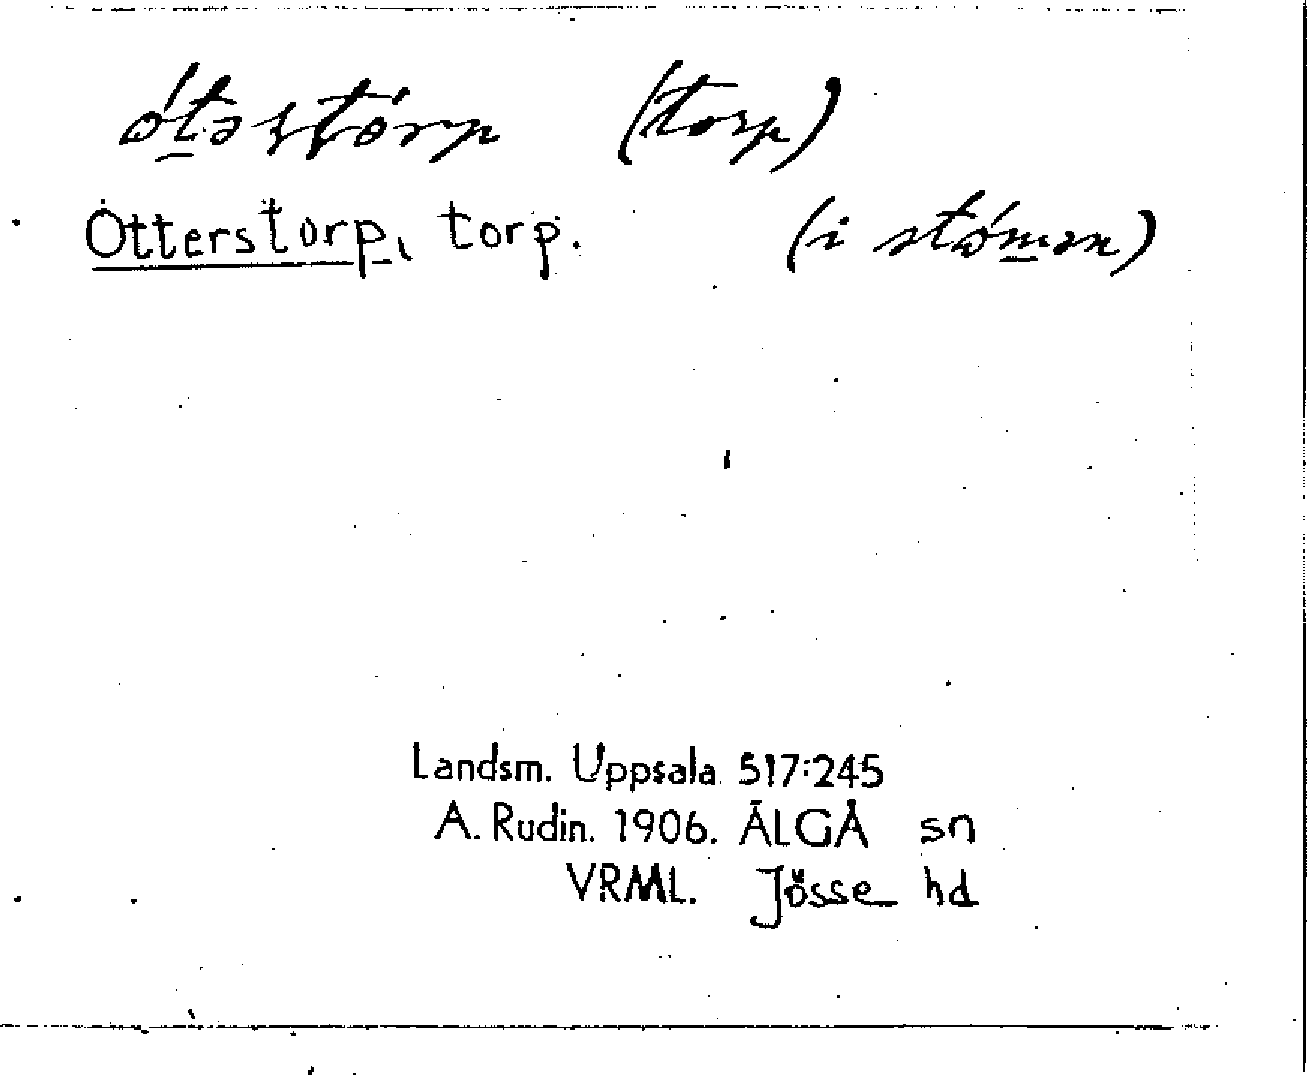 ótəstórp (torp)
Otterstorp, torp. (i stómən)
Landsm. Uppsala 517:245
A. Rudin. 1906. ÄLGÅ sn
VRML. Jösse hd